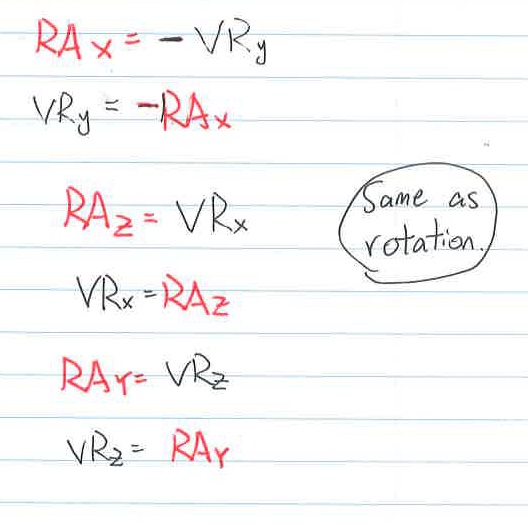 RAx = - VRy
VRy = -RAx
RAz = VRx
Same as
rotation.
VRx = RAz
RAY = VRz
VRz = RAY